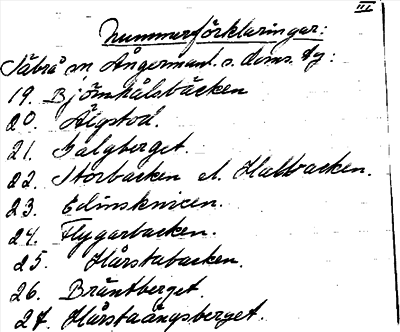 III
Nummerförklaringar:
Säbrå sn Ångermanl. s. doms. tg:
19. Björnhålsbäcken
20. Älgstod.
21. Galgberget.
22. Storbacken el. Hallbacken.
23. Edinsknicen.
24. Flygarbacken.
25. Hårstabacken.
26. Bräntberget
27. Hårstaängsberget.